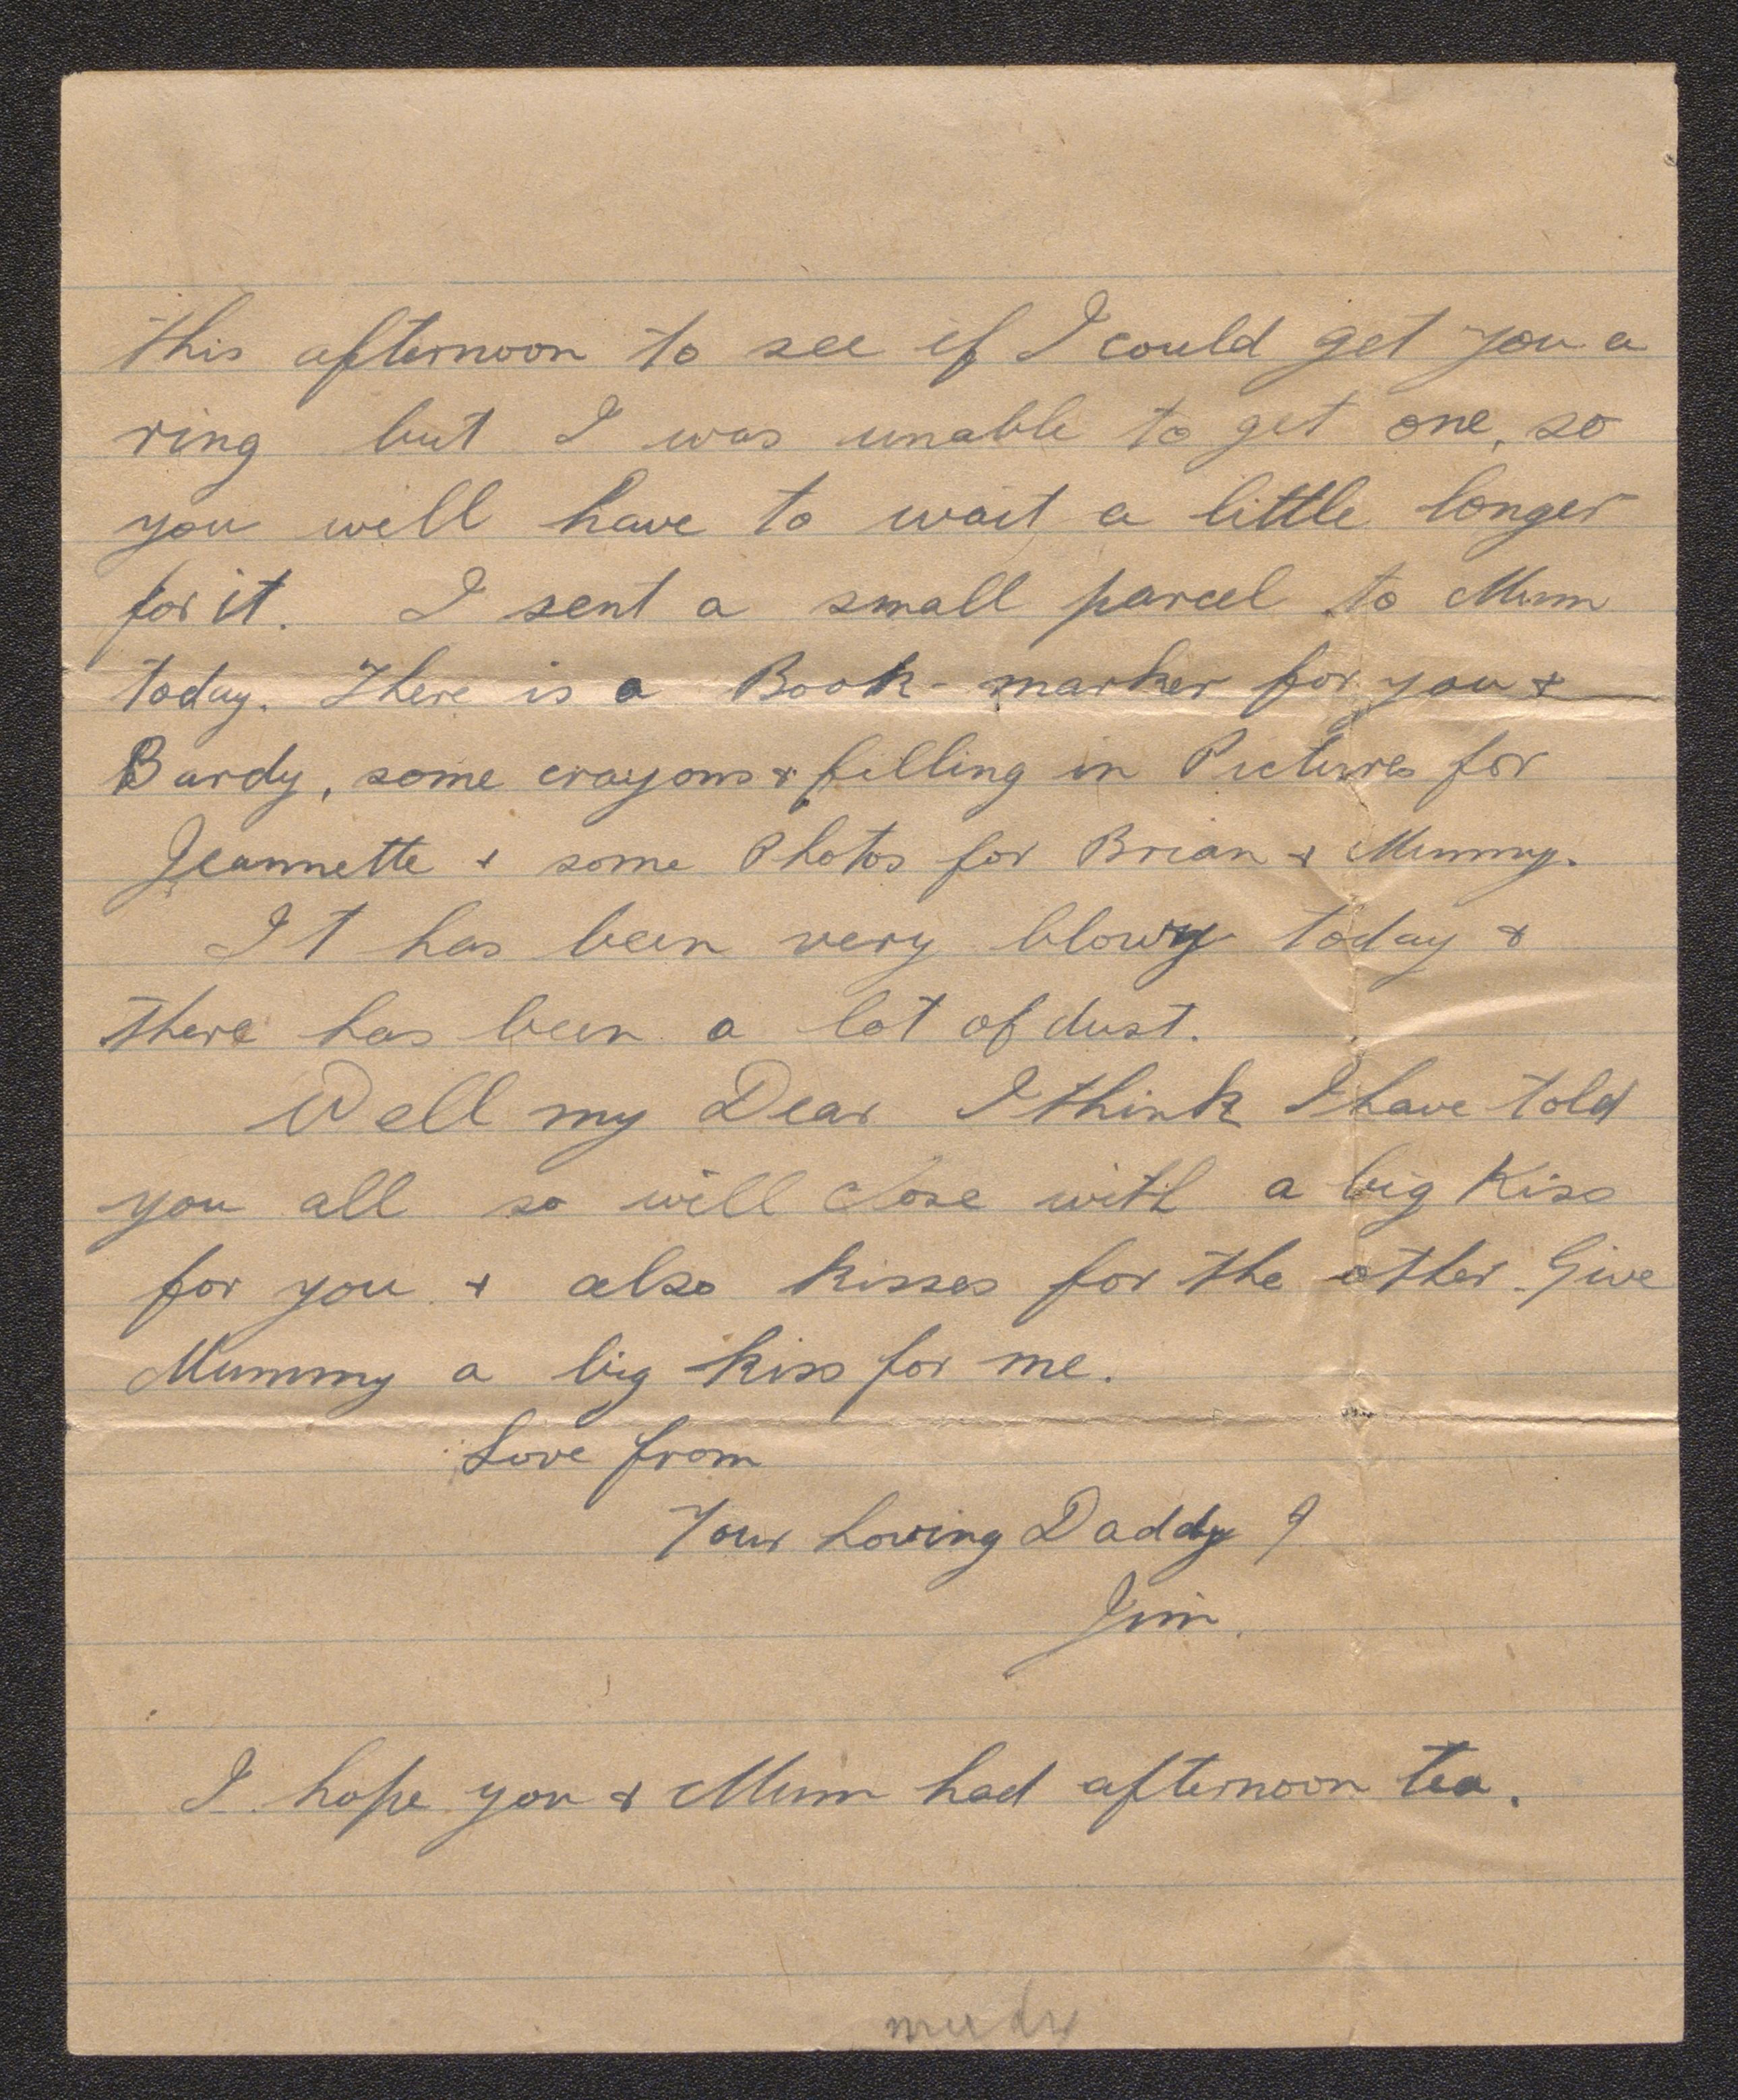 this afternoon to see if I could get you a
ring but I was unable to get one, so
you will have to wait a little longer
for it. I sent a small parcel to Mum
today. There is a Book-marker for you &
Bardy, some crayons & filling in Pictures for
Jeannette & some Photos for Brian & Mummy.
It has been very blowy today &
there has been a lot of dust.
Well my Dear I think I have told
you all so will close with a big Kiss
for you & also kisses for the other. Give
Mummy a big kiss for me.
Love from
Your loving Daddy
Jim.
I hope you & Mum had afternoon tea.